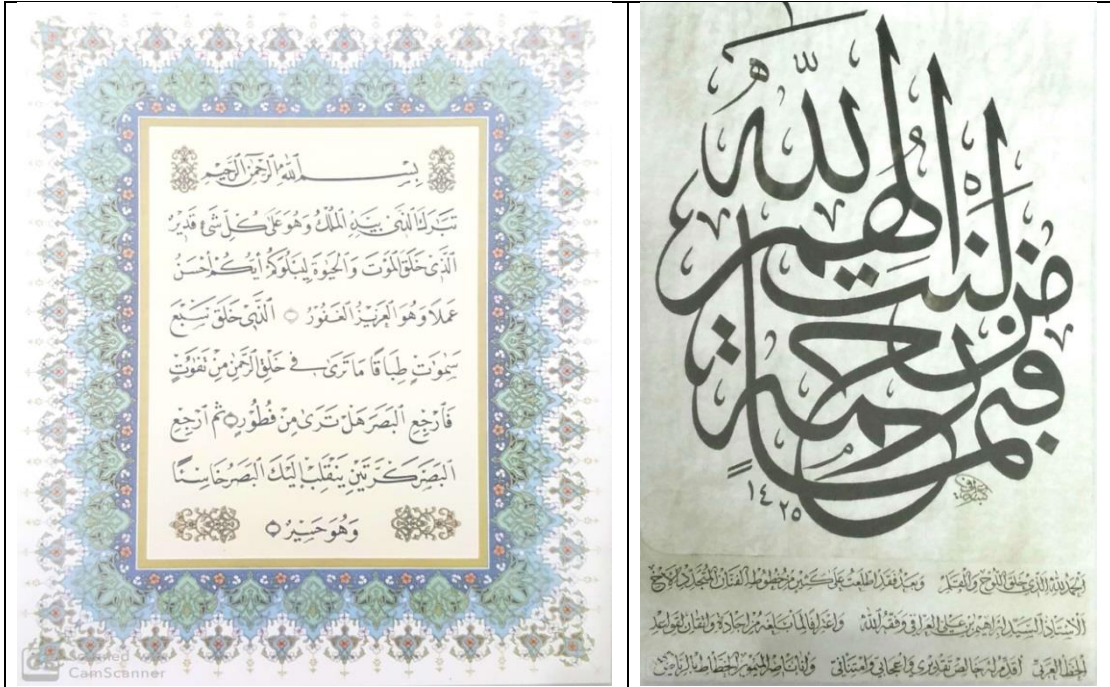 بِسْمِ اللَّهِ الرَّحْمَٰنِ الرَّحِيمِ
تَبَٰرَكَ الَّذِى بِيَدِهِ الْمُلْكُ وَهُوَ عَلَىٰ كُلِّ شَىْءٍ قَدِيرٌ
الَّذِى خَلَقَ الْمَوْتَ وَالْحَيَوٰةَ لِيَبْلُوَكُمْ أَيُّكُمْ أَحْسَنُ
عَمَلًا وَهُوَ الْعَزِيزُ الْغَفُورُ الَّذِى خَلَقَ سَبْعَ
سَمَٰوَٰتٍ طِبَاقًا مَا تَرَىٰ فِى خَلْقِ الرَّحْمَٰنِ مِنْ تَفَٰوُتٍ
فَارْجِعِ الْبَصَرَ هَلْ تَرَىٰ مِنْ فُطُورٍ ثُمَّ ارْجِعِ
الْبَصَرَ كَرَّتَيْنِ يَنْقَلِبْ إِلَيْكَ الْبَصَرُ خَاسِئًا
وَهُوَ حَسِيرٌ
CS Scanned with
CamScanner
فبما رحمةٍ من الله لنت لهم
١٤٢٥
الحمد لله الذي خلق اللوح والقلم وبعد فقد اطلعت على كثير من خطوط الفنان المتجدد الأخ
الأستاذ السيد إبراهيم بن علي العراقي وفقه الله من إجادة وإتقان لقواعد
الخط العربي أقدم له خالص تقديري وإعجابي وامتناني وأنا ناصر الميمون الخطاط بالرياض